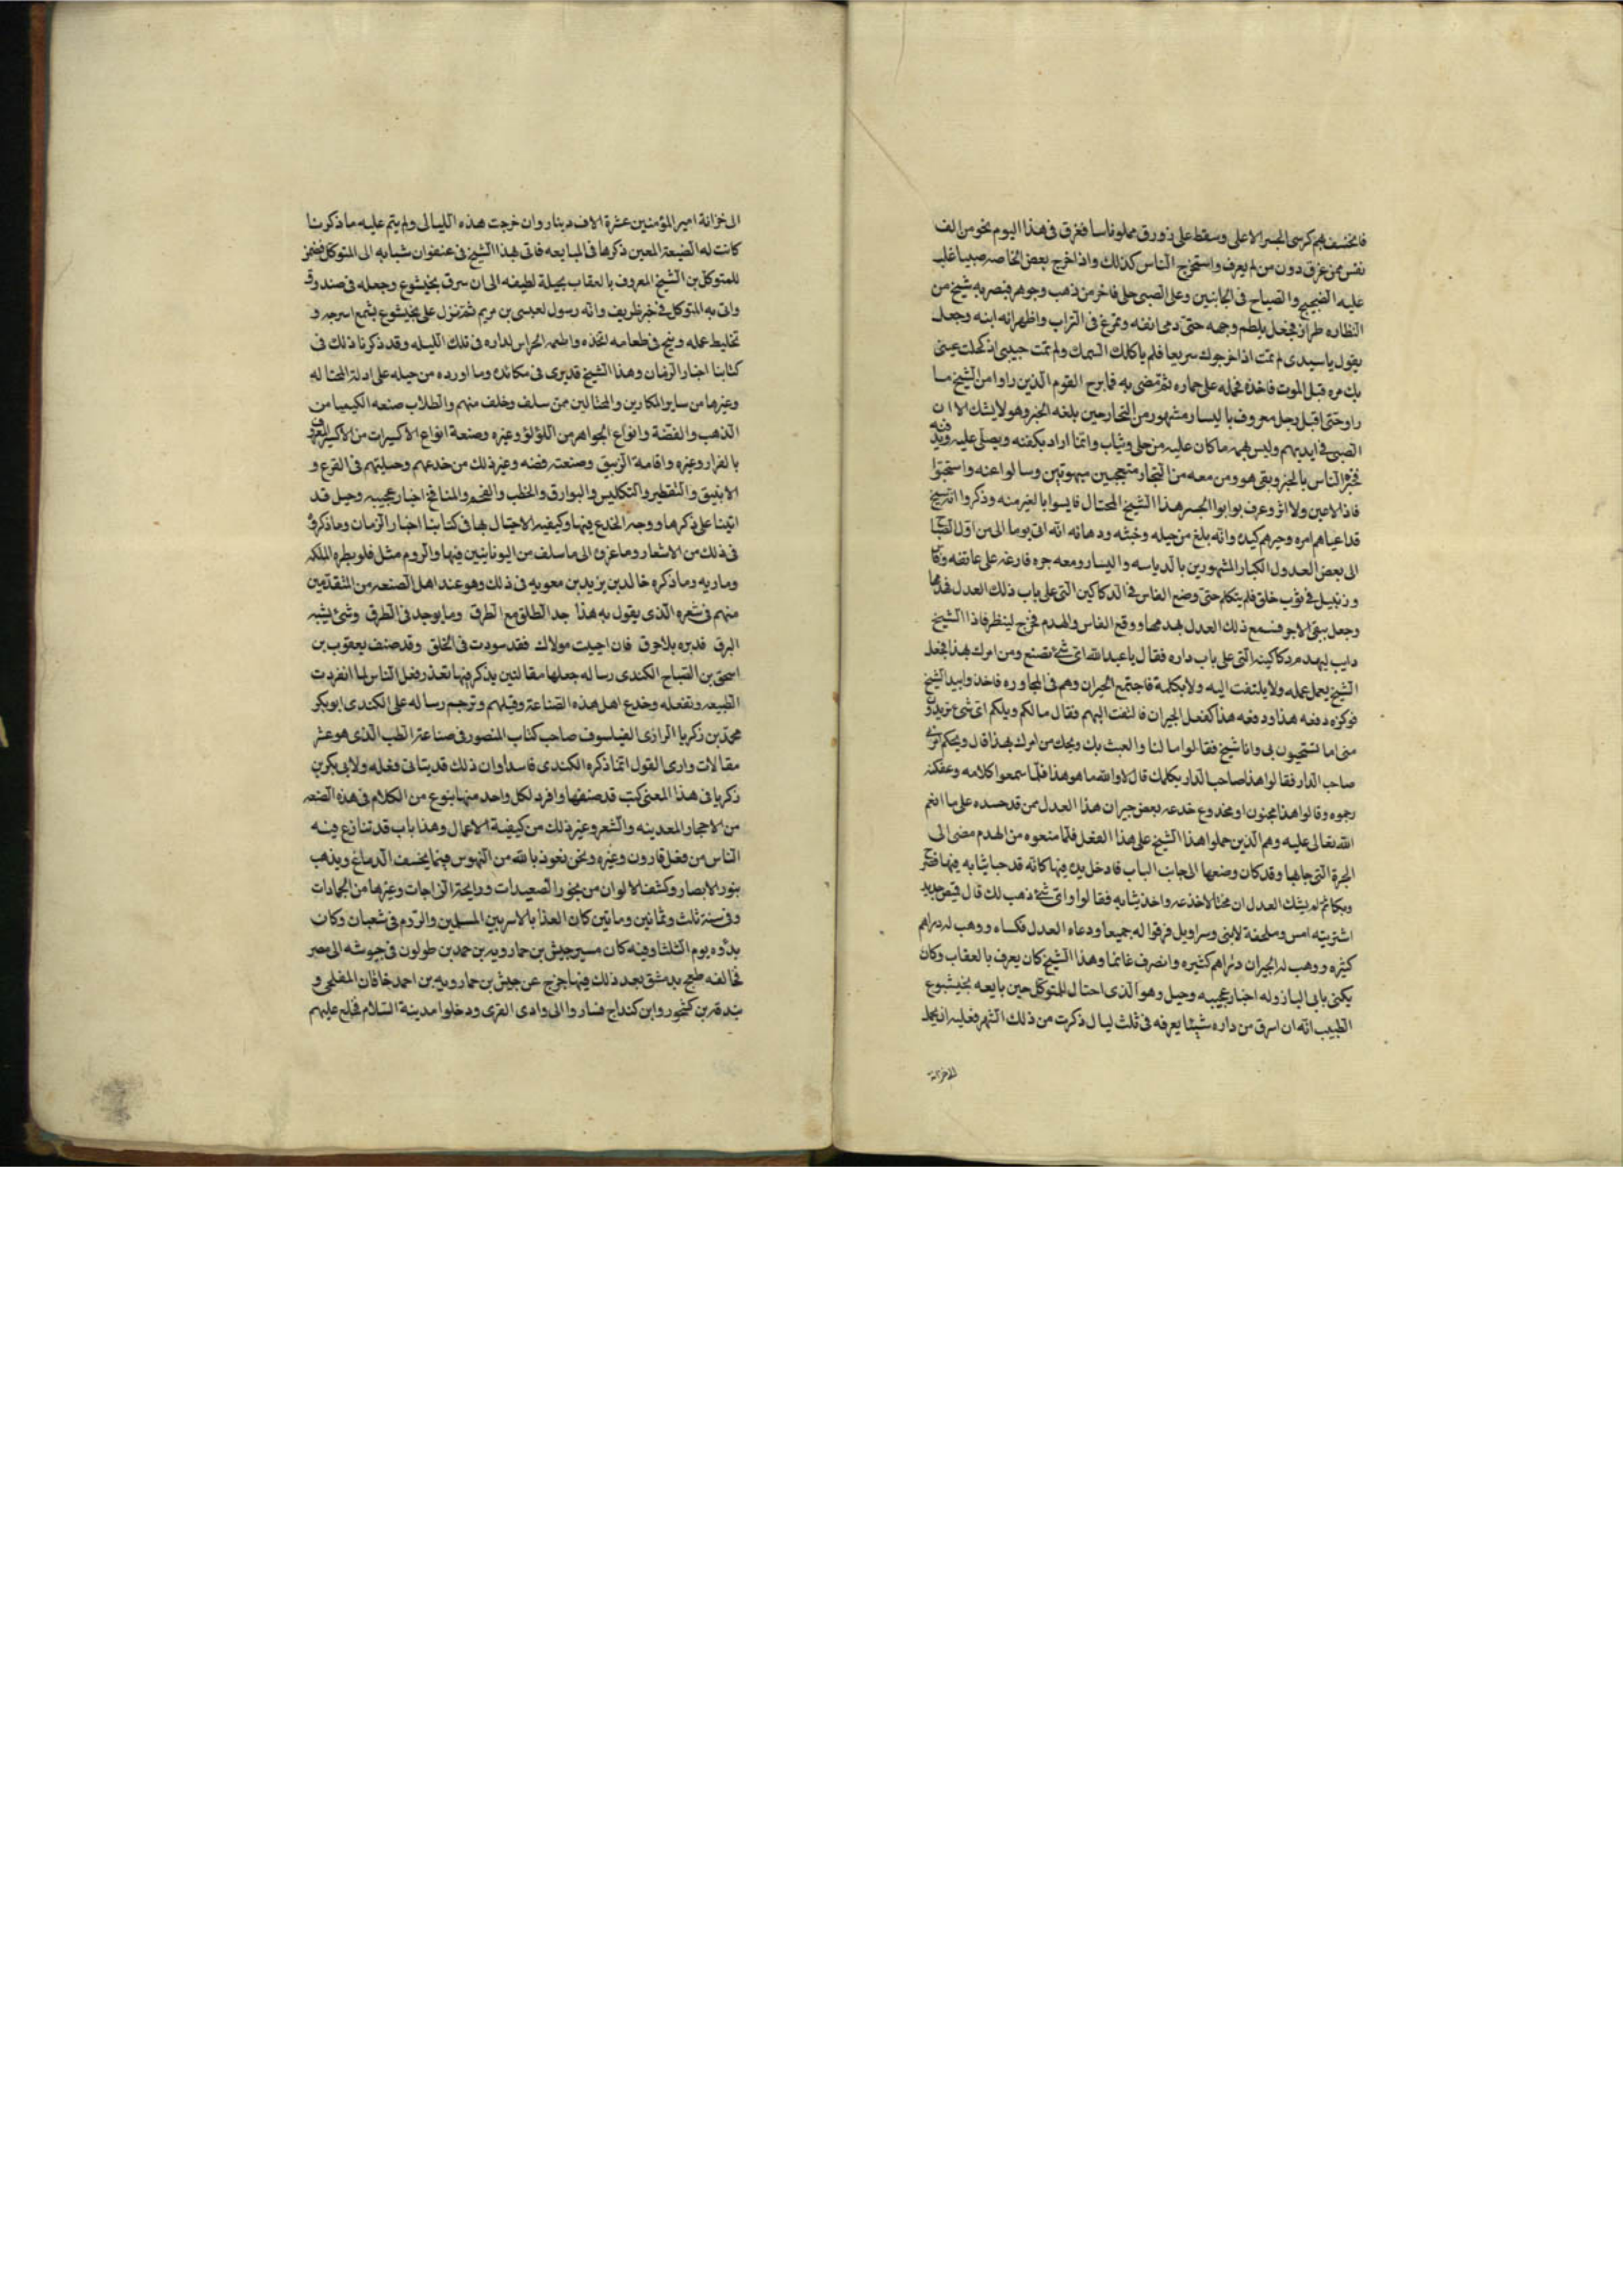 فانخسف بهم كرسى الجسر الاعلى وسقط على زورق مملو ناسا فغرق فى هذا اليوم نحو من الف
نفس ممن عرف دون من لم يعرف واستخرج الناس كذلك واذا خرج بعض الخاصه صبيا غلب
عليه الضجيج والصياح فى الجانبين وعلى الصبى حلى فاخر من ذهب وجوهر فبصر به شيخ من
النظاره طرار فجعل يلطم وجهه حتى دمى انفه وتمرغ فى التراب واظهر انه ابنه وجعل
يقول يا سيدى لم تمت اذ اخرجوك سريعا فلم ياكلك السمك ولم تمت حبيبى اذ كحلت عينى
بك مره قبل الموت فاخذه فحمله على حماره ثم مضى به فما برح القوم الذين راوا من الشيخ ما
راو حتى اقبل رجل معروف باليسار مشهور من التجار حين بلغه الخبر وهو لا يشك الا ان
الصبى فى ايديهم وليس يهمه ما كان عليه من حلى وثياب وانما اراد يكفنه ويصلى عليه ويدفنه
فخبره الناس بالخبر وبقى هو ومن معه من التجار متعجبين مبهوتين وسالوا عنه واستبحثوا
فاذا لا عين ولا اثر وعرف بوابوا الجسر هذا الشيخ المحتال فايسوا ابا الغير منه وذكروا انه شيخ
قد اعياهم امره وحيرهم كيده وانه بلغ من حيله وخبثه ودهائه انه اتى يوما الى من اول الصباح
الى بعض العدول الكبار المشهورين بالدياسه واليسار ومعه جره فارغه على عاتقه وفاس
وزنبيل فى ثوب خلق فلم يتكلم حتى وضع الفاس فى الدكاكين التى على باب ذلك العدل فهدمها
وجعل ينقى الاجر فسمع ذلك العدل هدمها ووقع الفاس والهدم فخرج لينظر فاذا الشيخ
دايب ليهدم دكاكينه التى على باب داره فقال يا عبد الله اى شئ تصنع ومن امرك بهذا فجعل
الشيخ يعمل عمله ولا يلتفت اليه ولا يكلمه فاجتمع الجيران وهم فى المحاوره فاخذوا بيد الشيخ
فوكزه دفعه هذا ودفعه هذا كفعل الجيران فالتفت اليهم فقال مالكم ويلكم اى شئ تريدون
منى اما تستحيون بى وانا شيخ فقالوا ما لنا والعبث بك ويحك من امرك بهذا قال ويحكم امرنى
صاحب الدار فقالوا هذا صاحب الدار يكلمك قال لا والله ما هو هذا فلما سمعوا كلامه وغفلته
رحموه وقالوا هذا مجنون او مخدوع خدعه بعض جيران هذا العدل ممن قد حسده على ما انعم
الله تعالى عليه وهم الذين حملوا هذا الشيخ على هذا الفعل فلما منعوه من الهدم مضى الى
الجرة التى جا بها وقد كان وضعها الى جانب الباب فادخل يده فيها كانه قد خبا ثيابه فيها فصرخ
وبكا ثم لم يشك العدل ان محتالا خدعه واخذ ثيابه فقالوا واى شئ ذهب لك قال قميص جديد
اشتريته امس وملحفة لابنى وسراويل فرقوا له جميعا ودعاه العدل فكساه ووهب له دراهم
كثيره ووهب له الجيران دراهم كثيره وانصرف غانما وهذا الشيخ كان يعرف بالعقاب وكان
يكنى بابى الباز وله اخبار عجيبه وحيل وهو الذى احتال للمتوكل حين بايعه بخيتشوع
الطبيب انه ان اسرق من داره شيئا يعرفه فى ثلث ليال ذكرت من ذلك الشهر فعليه ان يحمل
الى خزانة
الى خزانة امير المؤمنين عشرة الاف دينار وان خرجت هذه الليالى ولم يتم عليه ما ذكرنا
كانت له الضيعة المعين ذكرها فى المبايعه فاتى بهذا الشيخ فى عنفوان شبابه الى المتوكل فضمن
للمتوكل بن الشيخ المعروف بالعقاب بحيلة لطيفه الى ان سرق بخيتشوع وجعله فى صندوق
واتى به المتوكل فى خبر ظريف وانه رسول لعيسى بن مريم ثم نزل على بخيتشوع بشمع اسرجه و
تخليط عمله وبنج فى طعامه اتخذه واطعمه الحراس لداره فى تلك الليله وقد ذكرنا ذلك فى
كتابنا اخبار الزمان وهذا الشيخ قد برى فى مكائده وما اورده من حيله على ادلة المحتاله
وغيرها من سائر المكارين والمحتالين ممن سلف وخلف منهم والطلاب صنعه الكيميا من
الذهب والفضة وانواع الجواهر من اللؤلؤ وغيره وصنعة انواع الاكسيرات من الاكسير المعروف
بالفرار وغيره واقامة الزيبق وصنعته فضه وغير ذلك من خدعهم وحيلتهم فى القرع و
الانبيق والتقطير والتكليس والبوارق والحطب والفحم والمنافخ اخبار عجيبه وحيل قد
اتينا على ذكرها ووجه الخدع فيها وكيفيه الاحتيال بها فى كتابنا اخبار الزمان وما ذكروه
فى ذلك من الاشعار وما عزى الى ما سلف من اليونانيين فيها والروم مثل قلوبطره الملكه
وماريه وما ذكره خالد بن يزيد بن معويه فى ذلك وهو عند اهل الصنعه من المتقدمين
منهم فى شعره الذى يقول به هذا خذ الطلق مع الطرق وما يوجد فى الطرق وشئ يشبه
البرق فدبره بلا حرق فان احببت مولاك فقد سودت فى الخلق وقد صنف يعقوب بن
اسحق بن الصباح الكندى رساله جعلها مقالتين يذكر فيها تعذر فعل الناس لما انفردت
الطبيعه وتفعله وخدع اهل هذه الصناعة وحيلهم وترجم رساله على الكندى ابو بكر
محمد بن زكريا الرازى الفيلسوف صاحب كتاب المنصور فى صناعة الطب الذى هو عشر
مقالات وارى القول انما ذكره الكندى فاسدا وان ذلك قد يتاتى وفعله ولابى بكر بن
زكريا فى هذا المعنى كتب قد صنفها وافرد لكل واحد منها بنوع من الكلام فى هذه الصنعه
من الاحجار المعدنيه والشعر وغير ذلك من كيفية الاعمال وهذا باب قد تنازع فيه
الناس من فعل قارون وغيره ونحن نعوذ بالله من التهوس فيما يخسف الدماغ ويذهب
بنور الابصار وكشف الالوان من بخور الصعيدات ورايحة الزاجات وغيرها من الجمادات
وفى سنة ثلث وثمانين ومايتين كان الغذا بالاسر بين المسلمين والروم فى شعبان وكان
بدؤه يوم الثلثا وفيه كان مسير جيش بن حمارويه بن حمد بن طولون فى جيوشه الى مصر
فخالفه طغج بدمشق بعد ذلك فيها خرج عن جيش بن حمارويه بن احمد خاقان المفلحى و
بندقه بن كمجور وابن كنداج فساروا الى وادى القرى ودخلوا مدينة السلام فخلع عليهم